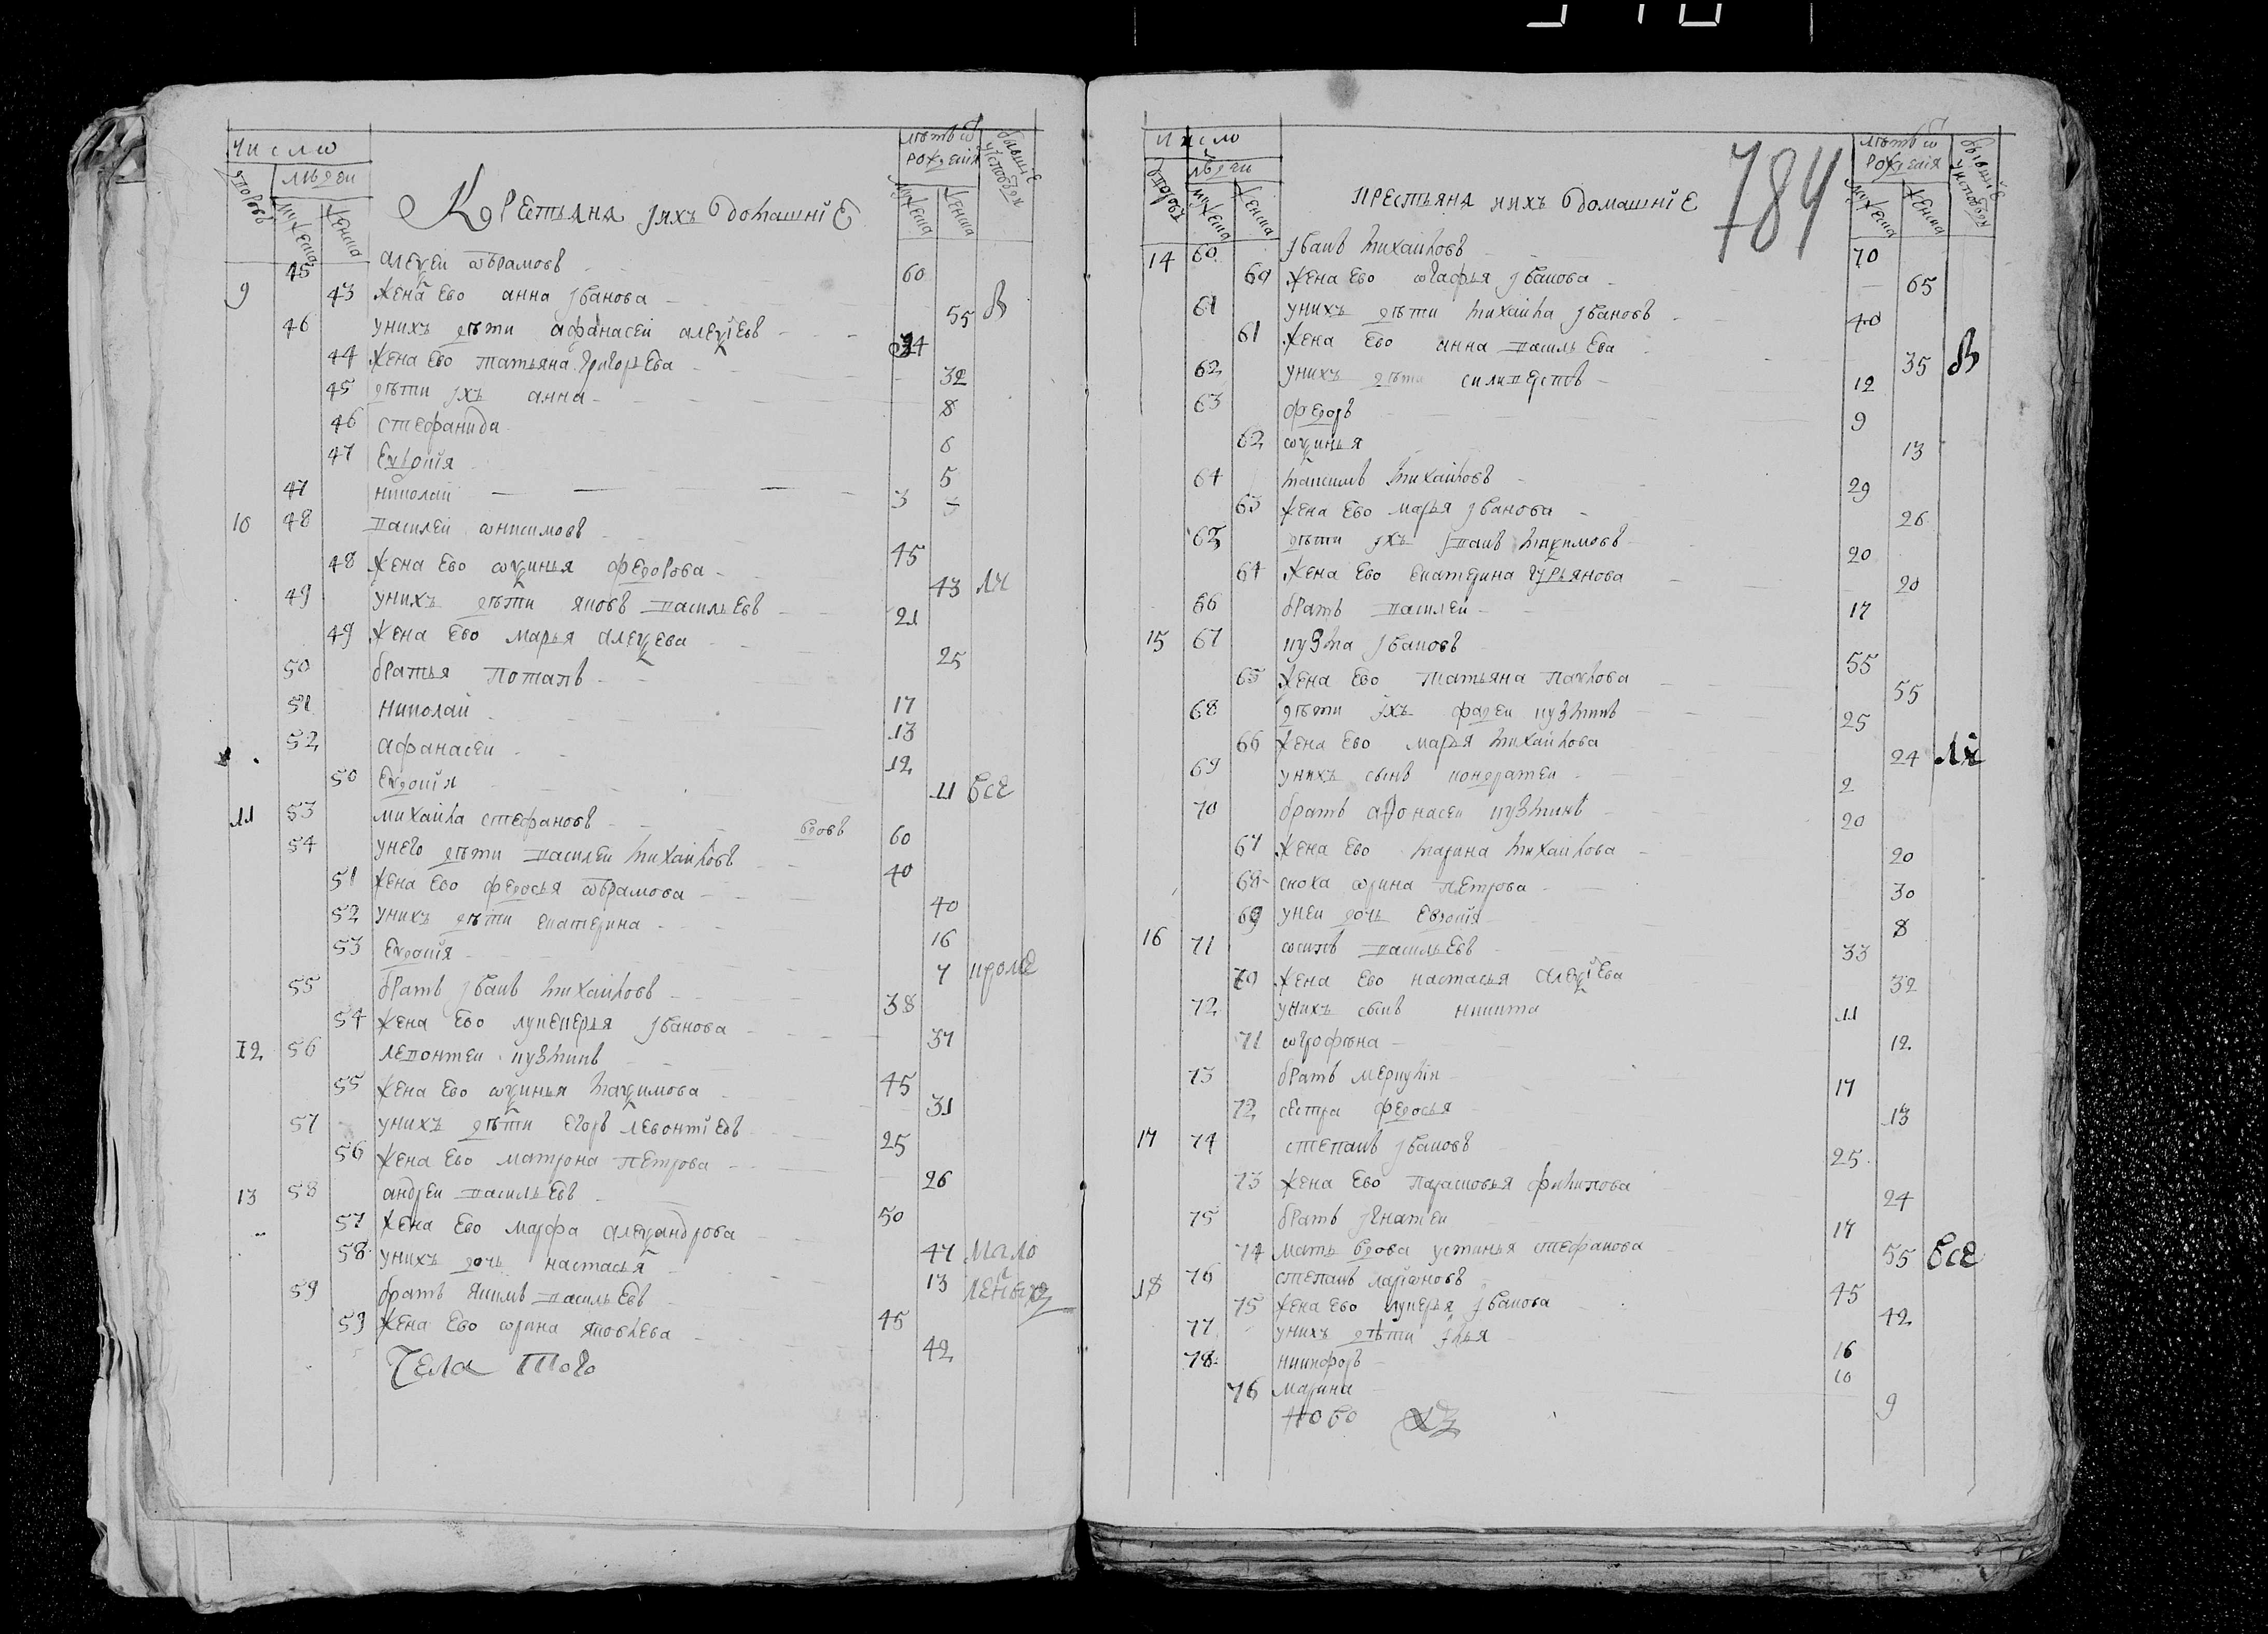 Число
людеи
дворовъ
мужеска
женска
Крестьяна ихъ домашніе
лѣтъ ѿ рожденія
мужеска
женска
бывшіе у исповѣди
45 алеѯеи аврамовъ 60
9 43 жена ево анна иванова 55 в
46 унихъ дѣти афанасеи алеѯіевъ 34
44 жена ево татьяна григорьева 32
45 дѣти ихъ анна 8
46 стефанида 6
47 Евдокія 5
47 николаи 3
10 48 василеи ѡнисимовъ 45
48 жена ево ѡѯинья федорова 43 ли
49 унихъ дѣти яковъ васильевъ 21
49 жена ево марья алеѯева 25
50 братья потапъ 17
51 николаи 13
52 афанасеи 12
50 Евдокія 11 все
11 53 михаила стефановъ вдовъ 60
54 унего дѣти василеи михаиловъ 40
51 жена ево федосья аврамова 40
52 унихъ дѣти екатерина 16
53 Евдокія 7 кроме
55 братъ иванъ михаиловъ 38
54 жена ево лукерья иванова 37
12 56 левонтеи кузминъ 45
55 жена ево ѡѯинья маѯимова 31
57 унихъ дѣти егоръ левонтіевъ 25
56 жена ево матрона петрова 26
13 58 андреи васильевъ 50
57 жена ево марфа алеѯандрова 47 мало
58 унихъ дочь настасья 13 летныхъ
59 братъ якимъ васильевъ 45
59 жена ево ѡрина яковлева 42
Села того
число
людеи
дворовъ
мужеска
женска
крестьяна ихъ домашніе
784
лѣтъ ѿ рожденія
мужеска
женска
бывшіе у исповѣди
14 60 иванъ михаиловъ 70
60 жена ево ѡгафья иванова 65
61 унихъ дѣти михаила ивановъ 40
61 жена ево анна васильева 35 в
62 унихъ дѣти силивестръ 12
63 федоръ 9
62 ѡѯинья 13
64 маѯимъ михаиловъ 29
63 жена ево марья иванова 26
65 дѣти ихъ иванъ маѯимовъ 20
64 жена ево екатерина гурьянова 20
66 братъ василеи 17
15 67 кузма ивановъ 55
65 жена ево татьяна павлова 55
68 дѣти ихъ фадеи кузминъ 25
66 жена ево марья михаилова 24 ли
69 унихъ сынъ кондратеи 2
70 братъ афонасеи кузминъ 20
67 жена ево марина михаилова 20
68 сноха ѡрина петрова 30
69 унеи дочь евдокія 8
16 71 ѡсипъ васильевъ 33
70 жена ево настасья алеѯіева 32
72 унихъ сынъ никита 11
71 ѡгрофѣна 12
73 братъ меркулъ 17
72 сестра федосья 13
17 74 степанъ ивановъ 25
73 жена ево парасковья филипова 24
75 братъ игнатеи 17
74 мать вдова устинья стефанова 55 все
18 76 степанъ ларіѡновъ 45
75 жена ево лукерья иванова 42
77 унихъ дѣти илья 16
78 никифоръ 10
76 марина 9
ново